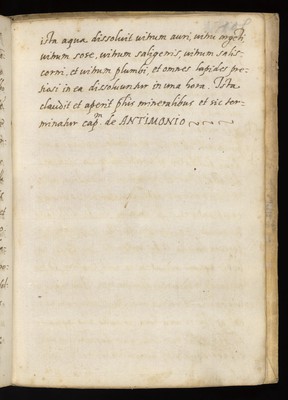 ista aqua dissoluit vitrum auri, vitrũ argẽti
vitrum sore, vitrum saligenis, vitrum salis
corni, et vitrum plumbi, et omnes lapides pre=
tiosi in ea dissoluuntur in vna hora. Ista
claudit et aperit phis mineralibus et sic ter=
minatur capm de ANTIMONIO